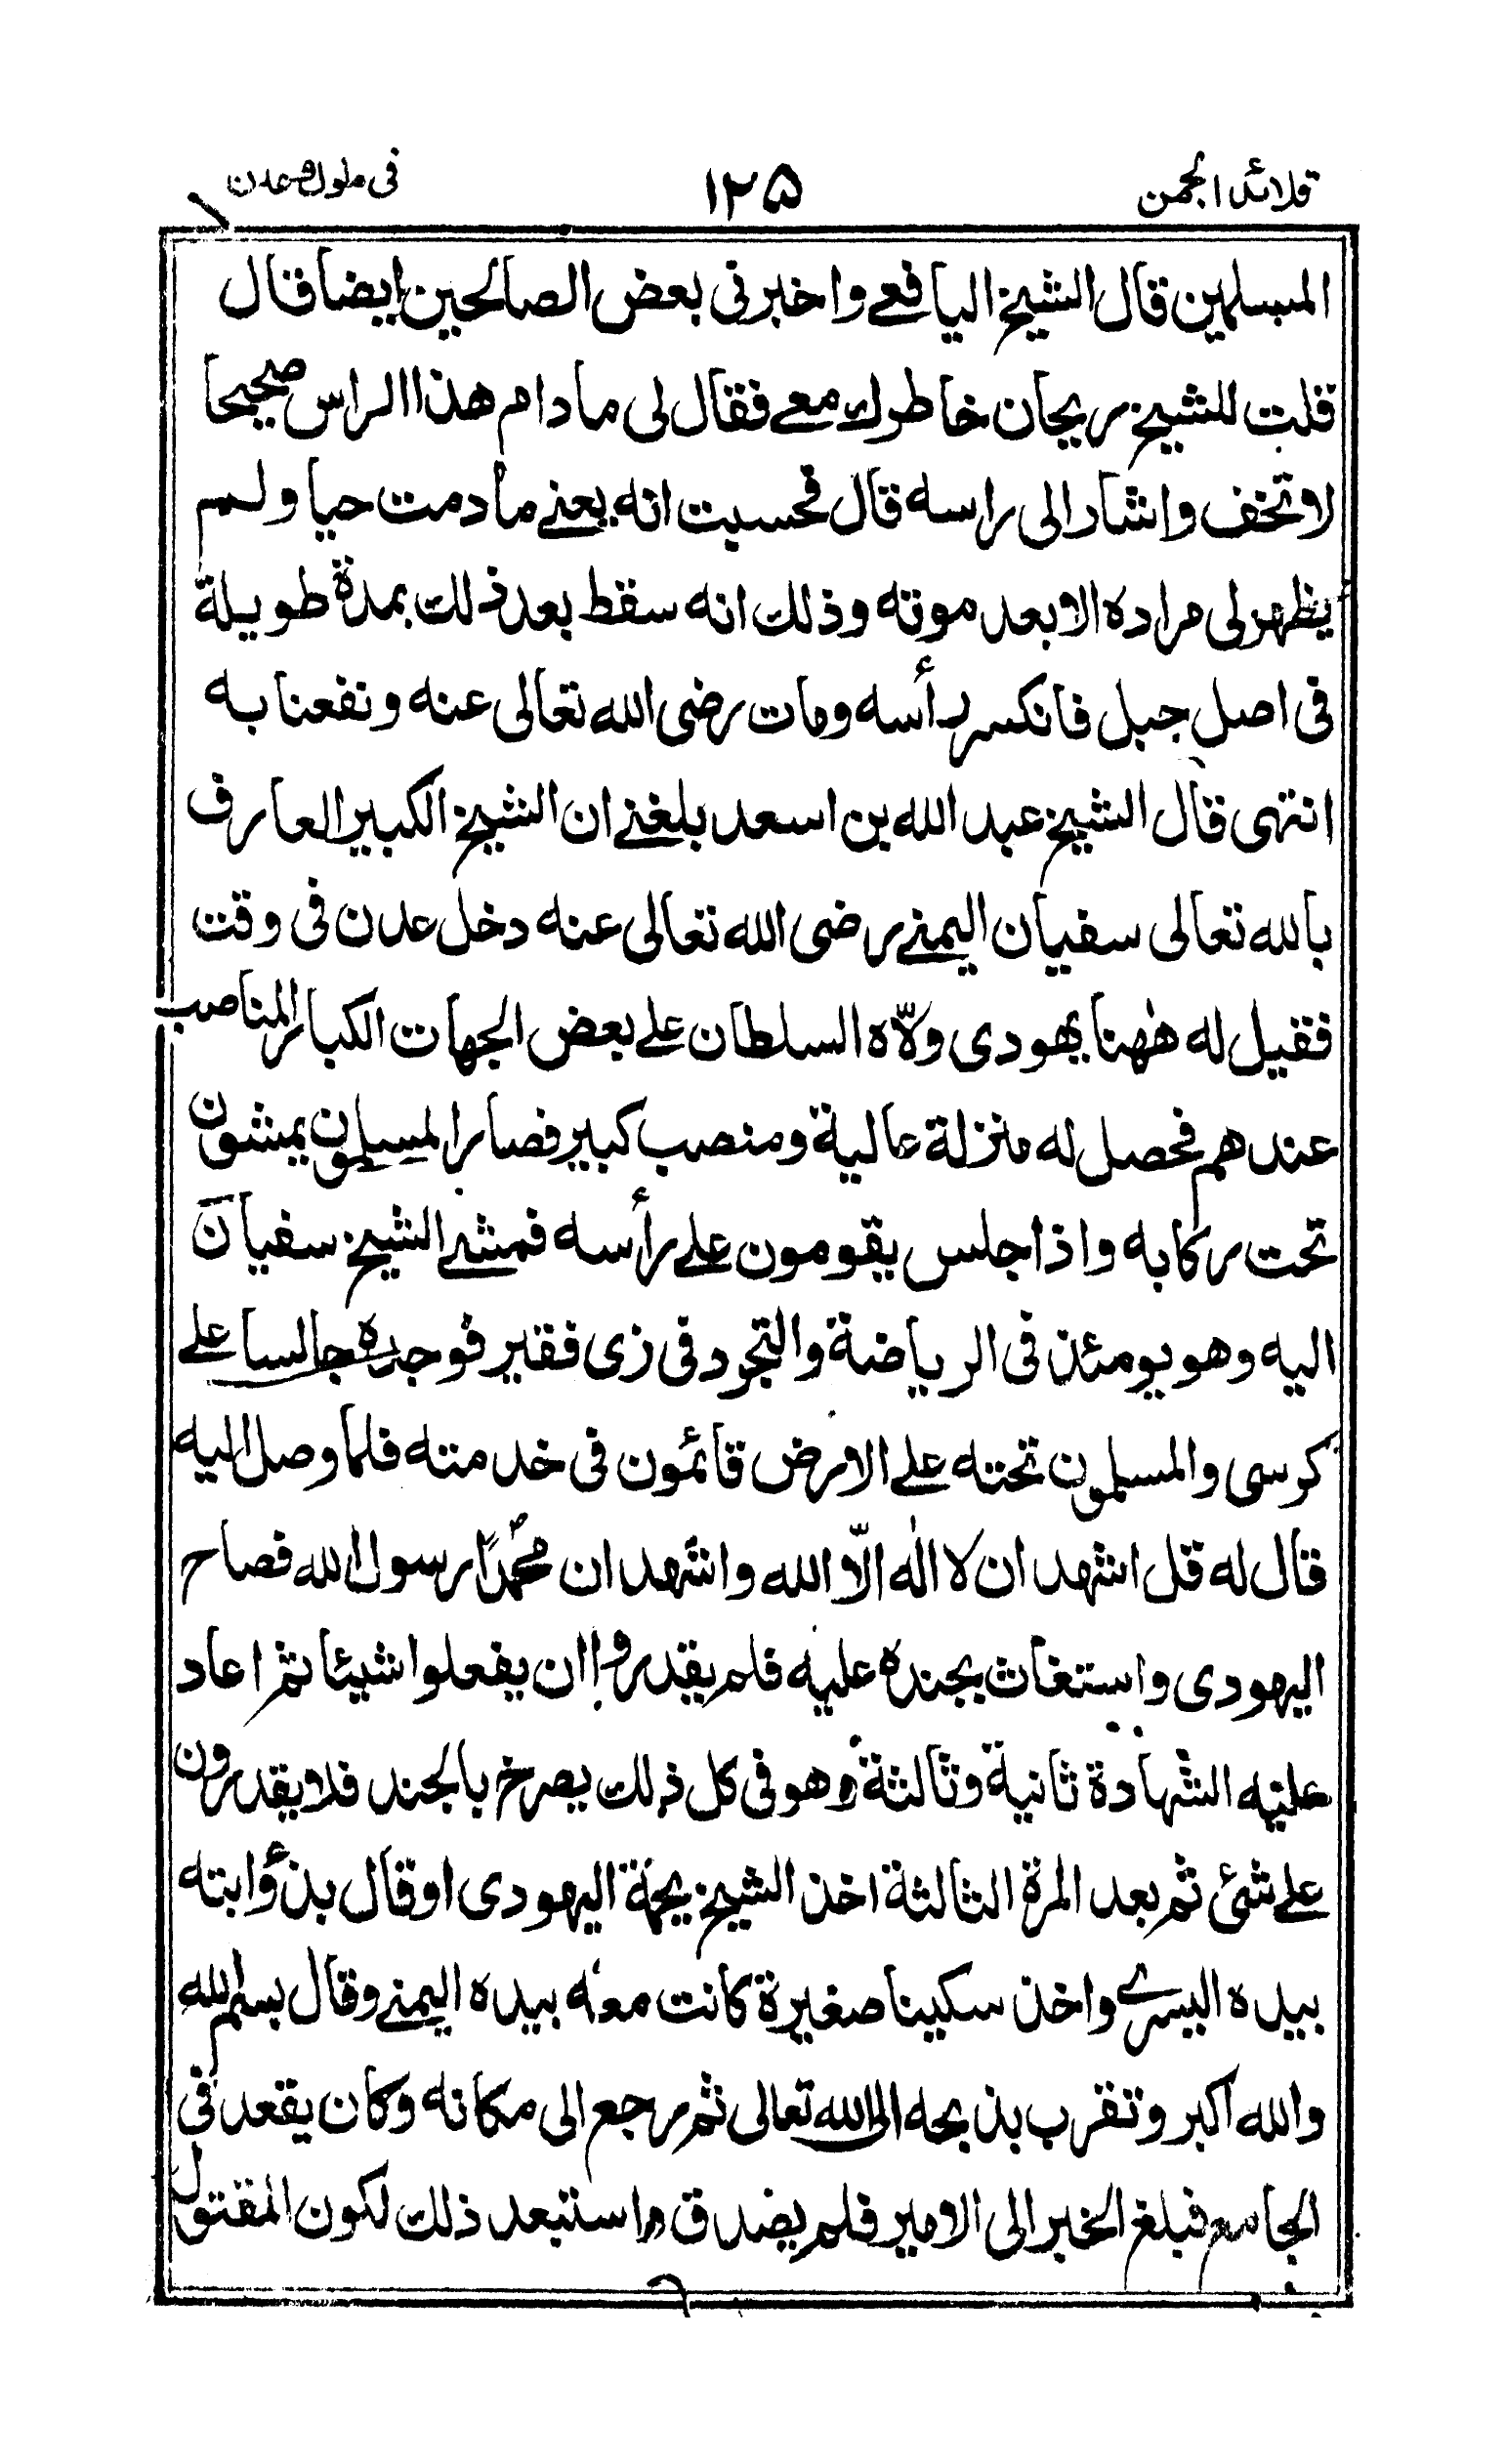 قلائد الجمن ١٢٥ فى ملوك عدن
المسلمين قال الشيخ اليافعے واخبرنى بعض الصالحين ايضا قال
قلت للشيخ ريحان خاطرك معے فقال لى ما دام هذا الراس صحيحا
لا تخف واشار الى راسه قال فحسبت انه يعنے ما دمت حيا ولم
يظهر لى مراده الا بعد موته وذلك انه سقط بعد ذلك بمدة طويلة
فى اصل جبل فانكسر رأسه ومات رضى الله تعالى عنه ونفعنا به
انتهى قال الشيخ عبد الله بن اسعد بلغنے ان الشيخ الكبير العارف
بالله تعالى سفيان اليمنے رضى الله تعالى عنه دخل عدن فى وقت
فقيل له هٰهنا يهودى ولّاه السلطان علے بعض الجهات الكبار المناصب
عندهم فحصل له منزلة عالية ومنصب كبير فصار المسلمون يمشون
تحت ركابه واذا جلس يقومون علے رأسه فمشے الشيخ سفيان
اليه وهو يومئذ فى الرياضة والتجرد فى زى فقير فوجده جالسا علے
كرسى والمسلمون تحته علے الارض قائمون فى خدمته فلما وصل اليه
قال له قل اشهد ان لا اله الّا الله واشهد ان محمدًا رسول الله فصاح
اليهودى واستغاث بجنده عليه فلم يقدروا ان يفعلوا شيئا ثم اعاد
عليه الشهادة ثانية وثالثة وهو فى كل ذلك يصرخ بالجند فلا يقدرون
علے شئ ثم بعد المرة الثالثة اخذ الشيخ بجمة اليهودى او قال بذؤابته
بيده اليسرے واخذ سكينا صغيرة كانت معه بيده اليمنے وقال بسم الله
والله اكبر وتقرب بذبحه الى الله تعالى ثم رجع الى مكانه وكان يقعد فى
الجامع فبلغ الخبر الى الامير فلم يصدق واستبعد ذلك لكون المقتول